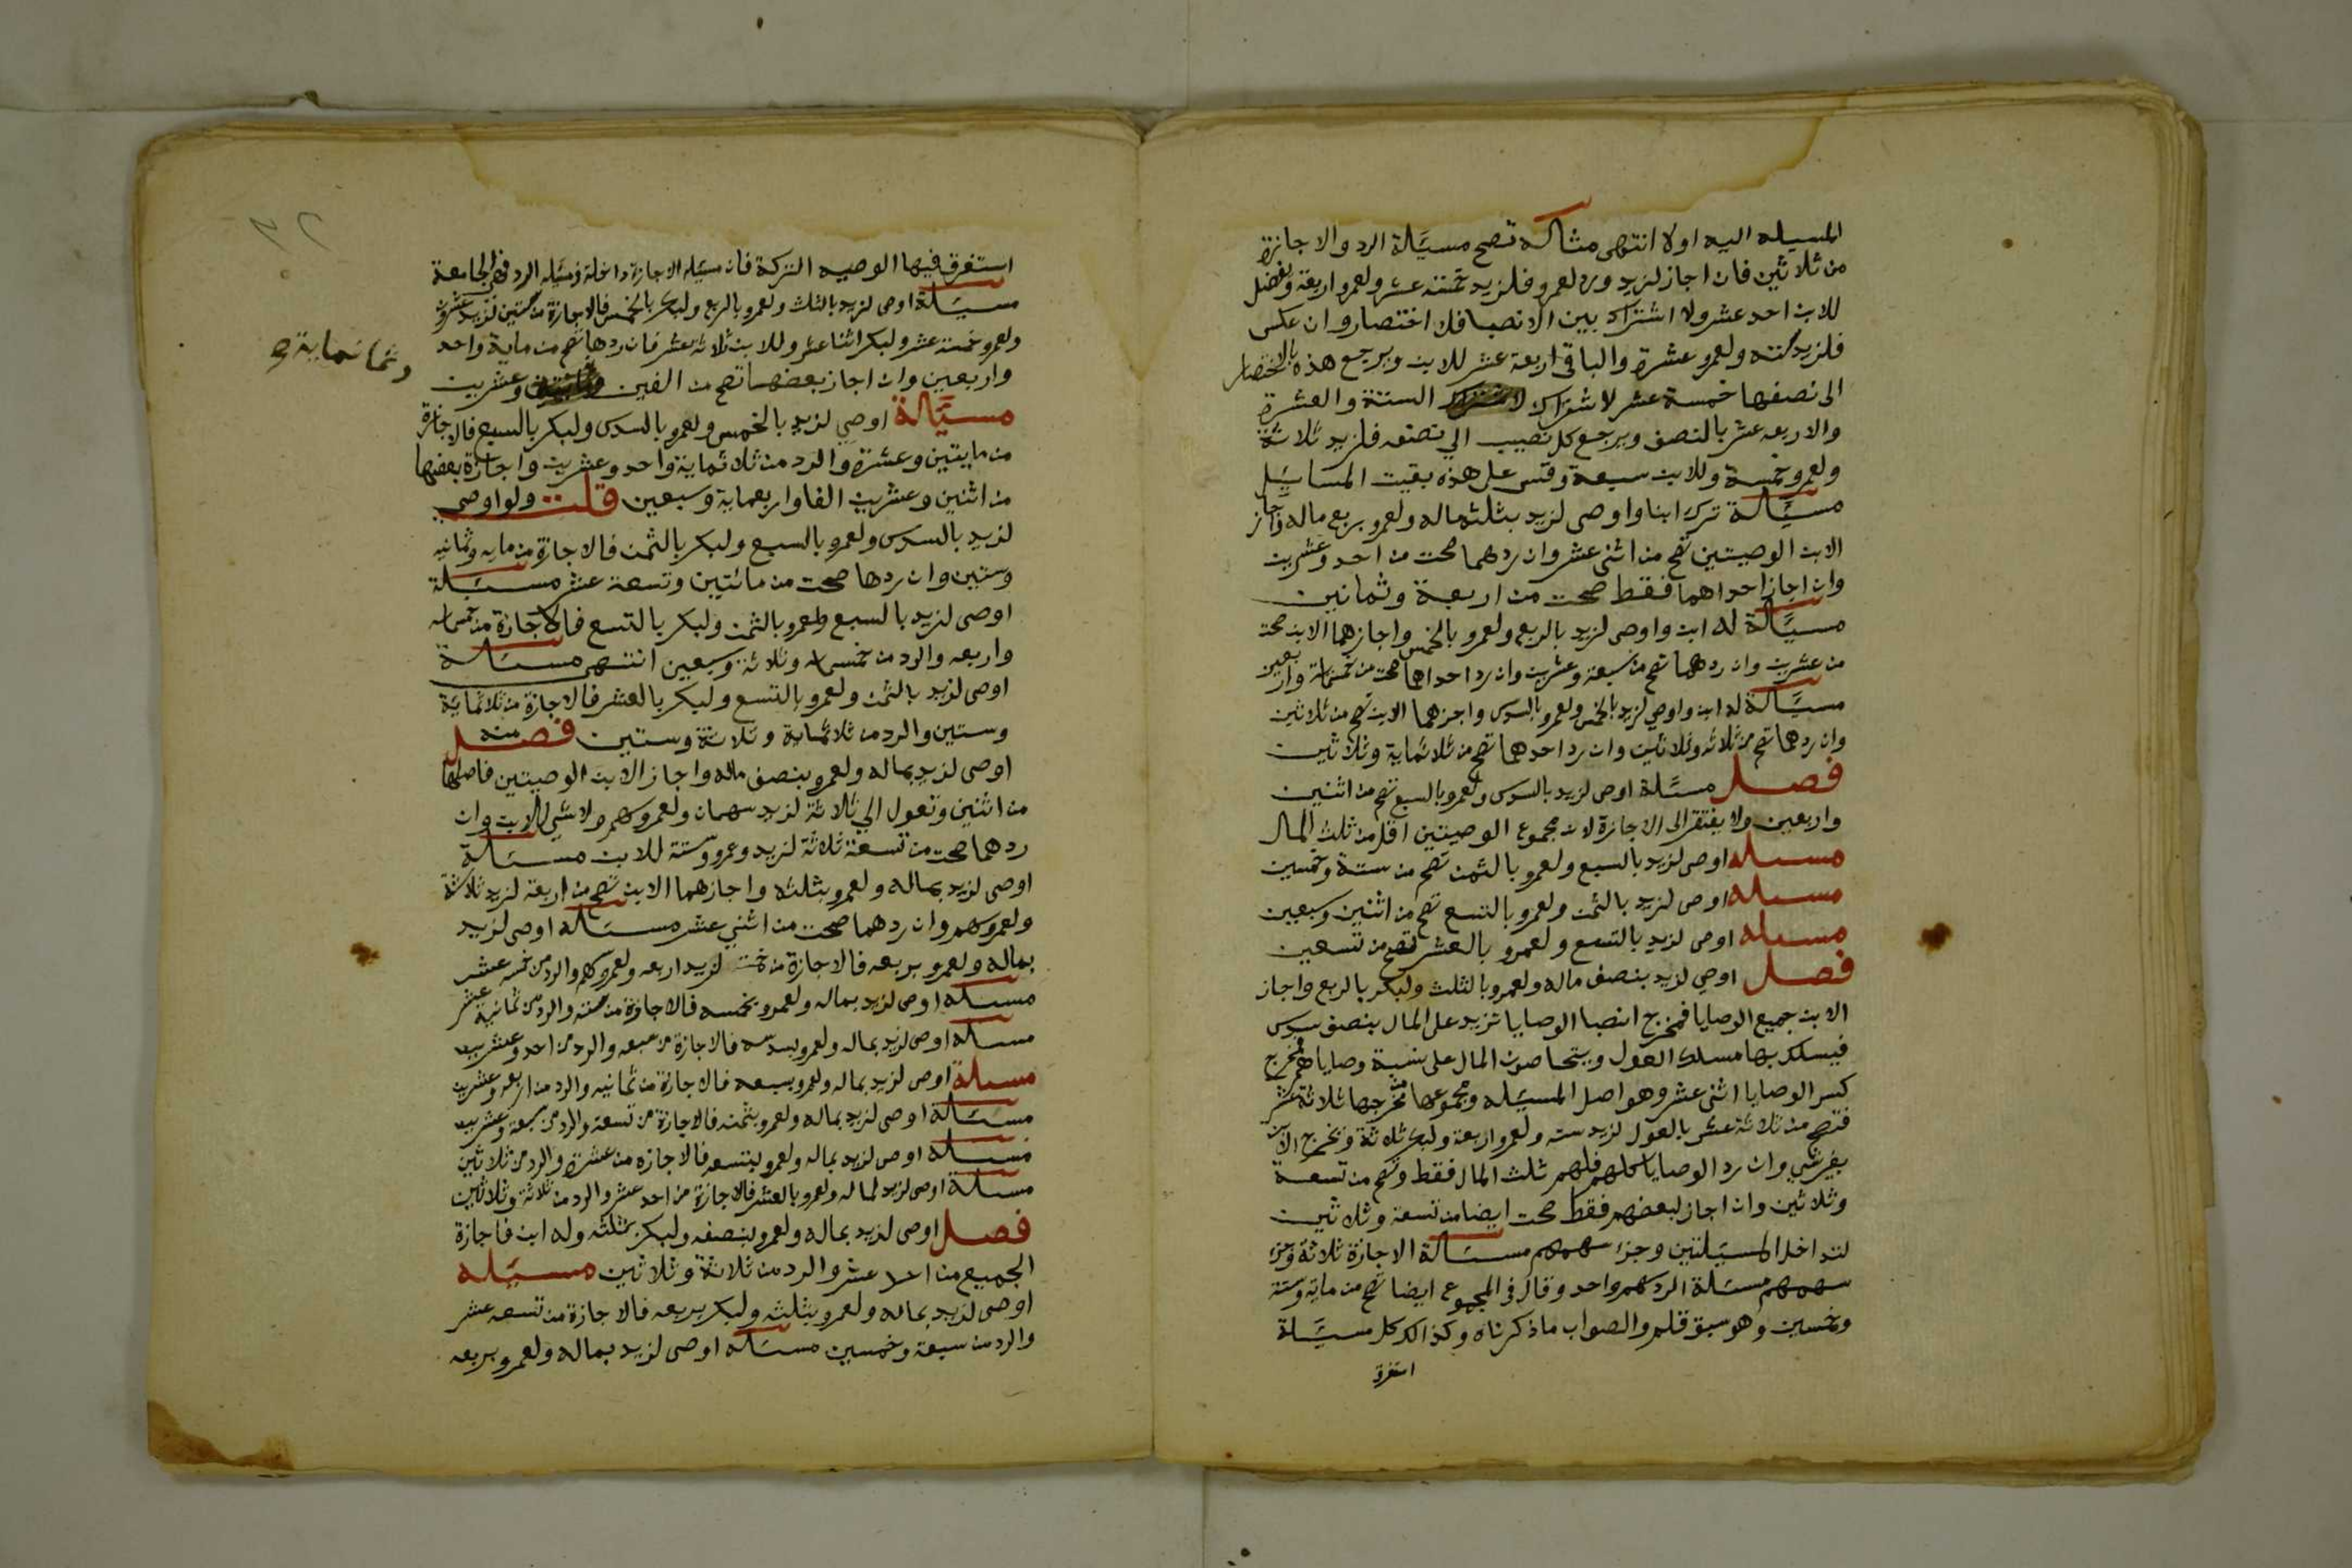 المسيله اليه اولا انتهى مثاله تصح مسيَلة الرد والاجازة
من ثلاثين فان اجاز لزيد ورد لعمرو فلزيد خمسة عشر ولعمرو اربعة ويفضل
للابن احد عشر ولا اشتراك بين الانصبا فلا اختصار وان عكس
فلزيد ستة ولعمرو عشرة والباقي اربعة عشر للابن ويرجع هذه بالاختصار
الى نصفها خمسة عشر لاشتراك الستة والعشرة
والاربعه عشر بالنصف ويرجع كل نصيب الي نصفه فلزيد ثلاثة
ولعمرو خمسة وللابن سبعة وقس على هذه بقيت المسايَل
مسيَالة ترك ابنا واوصى لزيد بثلث ماله ولعمرو بربع ماله واجاز
الابن الوصيتين تصح من اثنى عشر وان ردهما صحت من احد وعشرين
وان اجاز احداهما فقط صحت من اربعة وثمانين
مسيَالة له ابن واوصى لزيد بالربع ولعمرو بالخمس واجازهما الابن صحت
من عشرين وان ردهما تصح من سبعة وعشرين وان رد احداهما صحت من خمسماية واربعين
مسيَالة له ابن واوصي لزيد بالخمس ولعمرو بالسدس واجزهما الابن تصح من ثلاثين
وان ردهما تصح من ثلاثه وثلاثين وان رد احدهما تصح من ثلاثماية وثلاثين
فصل مسيَلة اوصى لزيد بالسدس ولعمرو بالسبع تصح من اثنين
واربعين ولا يفتقر الى الاجازة لان مجموع الوصيتين اقل من ثلث المال
مسيله اوصى لزيد بالسبع ولعمرو بالثمن تصح من ستة وخمسين
مسيله اوصى لزيد بالثمن ولعمرو بالتسع تصح من اثنين وسبعين
مسيله اوصى لزيد بالتسع ولعمرو بالعشر تصح من تسعين
فصل اوصي لزيد بنصف ماله ولعمرو بالثلث ولبكر بالربع واجاز
الابن جميع الوصايا فمخرج انصبا الوصايا تزيد على المال بنصف سدس
فيسلك بها مسلك العول ويتحاصون المال على نسبة وصاياهم فمخرج
كسر الوصايا اثنى عشر وهو اصل المسيَله ومجموعها من مخرجها ثلاثة عشر
فتصح من ثلاثة عشر بالعول لزيد سته ولعمرو اربعة ولبكر ثلاثة ويخرج الابن
بغير شي وان رد الوصايا كلهم فلهم ثلث المال فقط وتصح من تسعة
وثلاثين وان اجاز لبعضهم فقط صحت ايضا من تسعة وثلاثين
لتداخل المسيَلتين وجزء سهمهم مسيَالة الاجازة ثلاثة وجزء
سهمهم مسيَلة الرد سهم واحد وقال في المجموع ايضا تصح من ماية وستة
وخمسين وهو سبق قلم والصواب ما ذكرناه وكذالك كل مسيَلة
استغرق
استغرق فيها الوصيه التركة فان مسيَله الاجازة داخلة في مسيَله الرد فهي الجامعة
مسيَلة اوصى لزيد بالثلث ولعمرو بالربع ولبكر بالخمس فالاجازة من ستين لزيد عشرون
ولعمرو خمسة عشر ولبكر اثنا عشر وللابن ثلاثة عشر فان ردها تصح من ماية واحد
واربعين وان اجاز بعضها تصح من الفين وعشرين
وثمانماية صح
مسيَالة اوصى لزيد بالخمس ولعمرو بالسدس ولبكر بالسبع فالاجازة
من مايتين وعشرة والرد من ثلاثماية واحد وعشرين واجازة بعضها
من اثنين وعشرين الفا واربعماية وسبعين قلت ولو اوصى
لزيد بالسدس ولعمرو بالسبع ولبكر بالثمن فالاجازة من مايه وثمانيه
وستين وان ردها صحت من مائتين وتسعة عشر مسيَلة
اوصى لزيد بالسبع ولعمرو بالثمن ولبكر بالتسع فالاجازة من خمسمايه
واربعه والرد من خمسمايه وثلاثة وسبعين انتهى مسيَالة
اوصى لزيد بالثمن ولعمرو بالتسع ولبكر بالعشر فالاجازة من ثلاثماية
وستين والرد من ثلاثماية وثلاثة وستين فصل
اوصى لزيد بماله ولعمرو بنصف ماله واجاز الابن الوصيتين فاصلها
من اثنين وتعول الي ثلاثة لزيد سهمان ولعمرو سهم ولا شي للابن وان
ردهما صحت من تسعة ثلاثة لزيد وعمرو وستة للابن مسيَالة
اوصى لزيد بماله ولعمرو بثلثه واجازهما الابن تصح من اربعة لزيد ثلاثة
ولعمرو سهم وان ردهما صحت من اثني عشر مسيَاله اوصى لزيد
بماله ولعمرو بربعه فالاجازة من خمسة لزيد اربعه ولعمرو سهم والرد من خمسة عشر
مسيَله اوصى لزيد بماله ولعمرو بخمسه فالاجازة من ستة والرد من ثمانية عشر
مسيَله اوصى لزيد بماله ولعمرو بسدسه فالاجازة من سبعه والرد من احد وعشرين
مسيلة اوصى لزيد بماله ولعمرو بسبعه فالاجازة من ثمانيه والرد من اربعه وعشرين
مسيَالة اوصى لزيد بماله ولعمرو بثمنه فالاجازة من تسعة والرد من سبعة وعشرين
مسيَله اوصى لزيد بماله ولعمرو بتسعه فالاجازه من عشرة والرد من ثلاثين
مسيَلة اوصى لزيد بماله ولعمرو بالعشر فالاجازة من احد عشر والرد من ثلاثة وثلاثين
فصل اوصى لزيد بماله ولعمرو بنصفه ولبكر بثلثه وله ابن فاجازة
الجميع من احد عشر والرد من ثلاثة وثلاثين مسيَله
اوصى لزيد بماله ولعمرو بثلثه ولبكر بربعه فالاجازة من تسعه عشر
والرد من سبعة وخمسين مسيَاله اوصى لزيد بماله ولعمرو بربعه